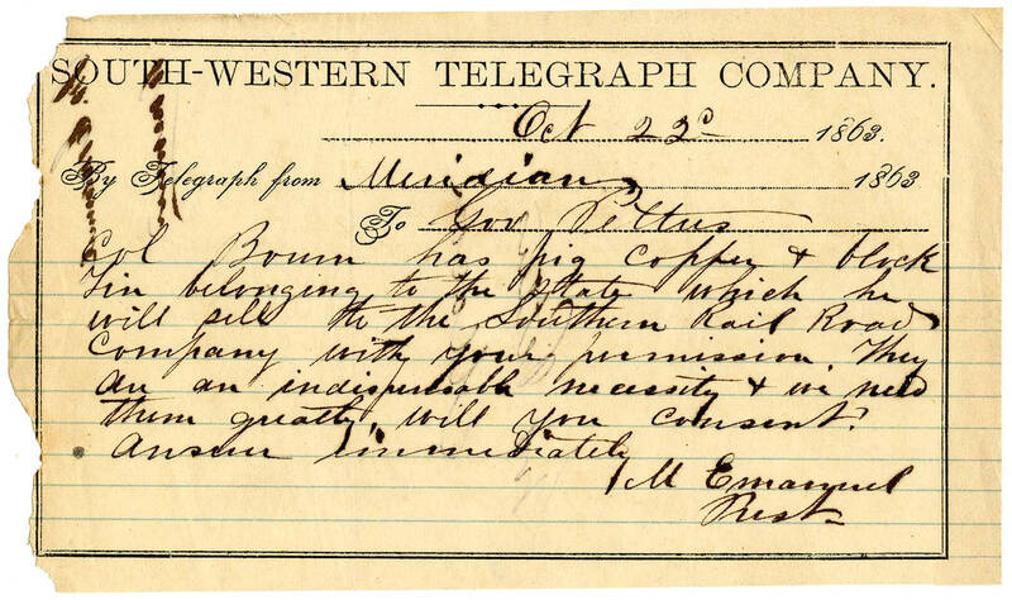 SOUTH-WESTERN TELEGRAPH COMPANY.
Oct 22d 1863.
By Telegraph from Meridian 1863
To Gov Pettus
Col Bourn has pig copper & block
Tin belonging to the State which he
will sell to the Southern Rail Road
Company with your permission They
are an indispensable necessity & we need
them greatly, will you consent?
Answer immediately
M Emanuel
Prest